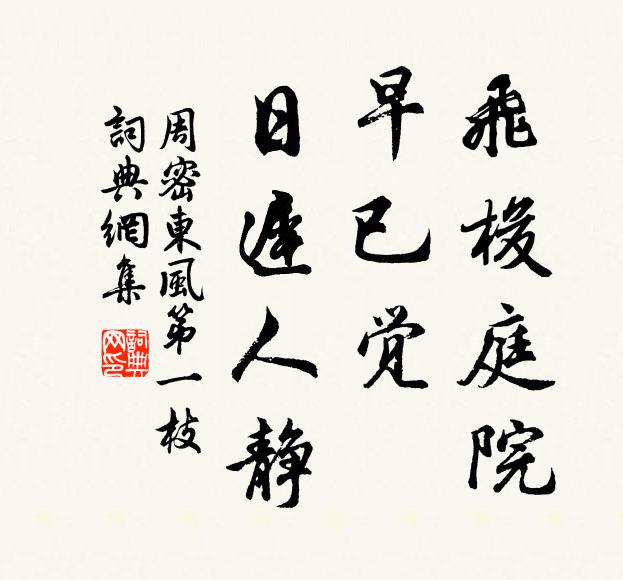 飛梭庭院
早已觉
日遲人静
周密東風第一枝
詞典網集
詞典网印